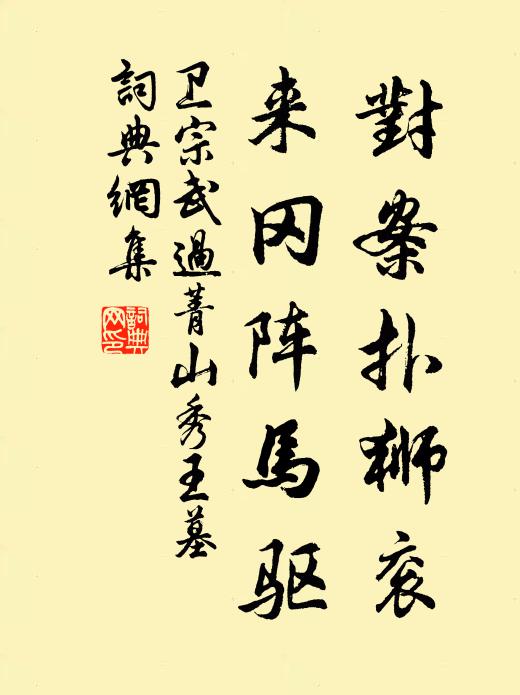 對案扑狮衮
来冈阵馬驱
卫宗武過菁山秀王墓
詞典網集
詞典
网印